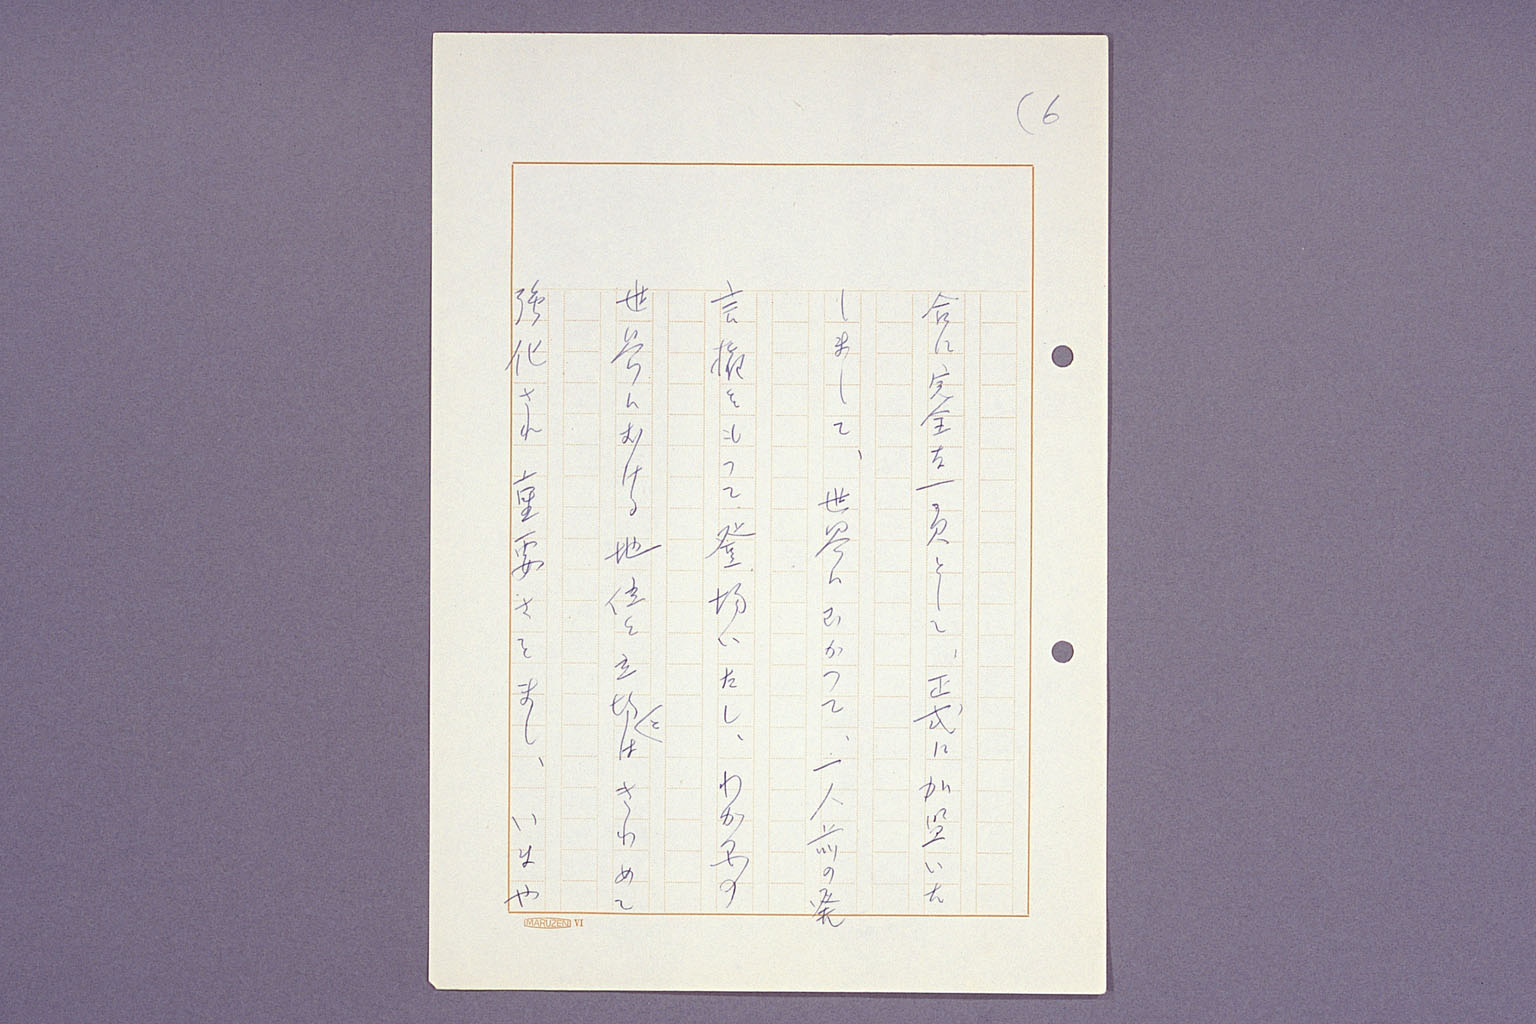 (6
合に完全な一員として、正式に加盟いた
しまして、世界にむかって、一人前の発
言権をもって登場いたし、わが国の
世界における地位と立場とはきわめて
強化され重要さをまし、いまや
MARUZEN VI